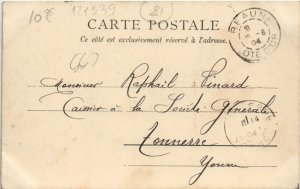 10f 124539 (21)
CARTE POSTALE
Ce côté est exclusivement réservé à l'adresse.
BEAUNE
5 -6
04
CÔTE-D'OR
Monsieur Raphaël Pinard
Caissier à la Société Générale
Tonnerre
Yonne
04